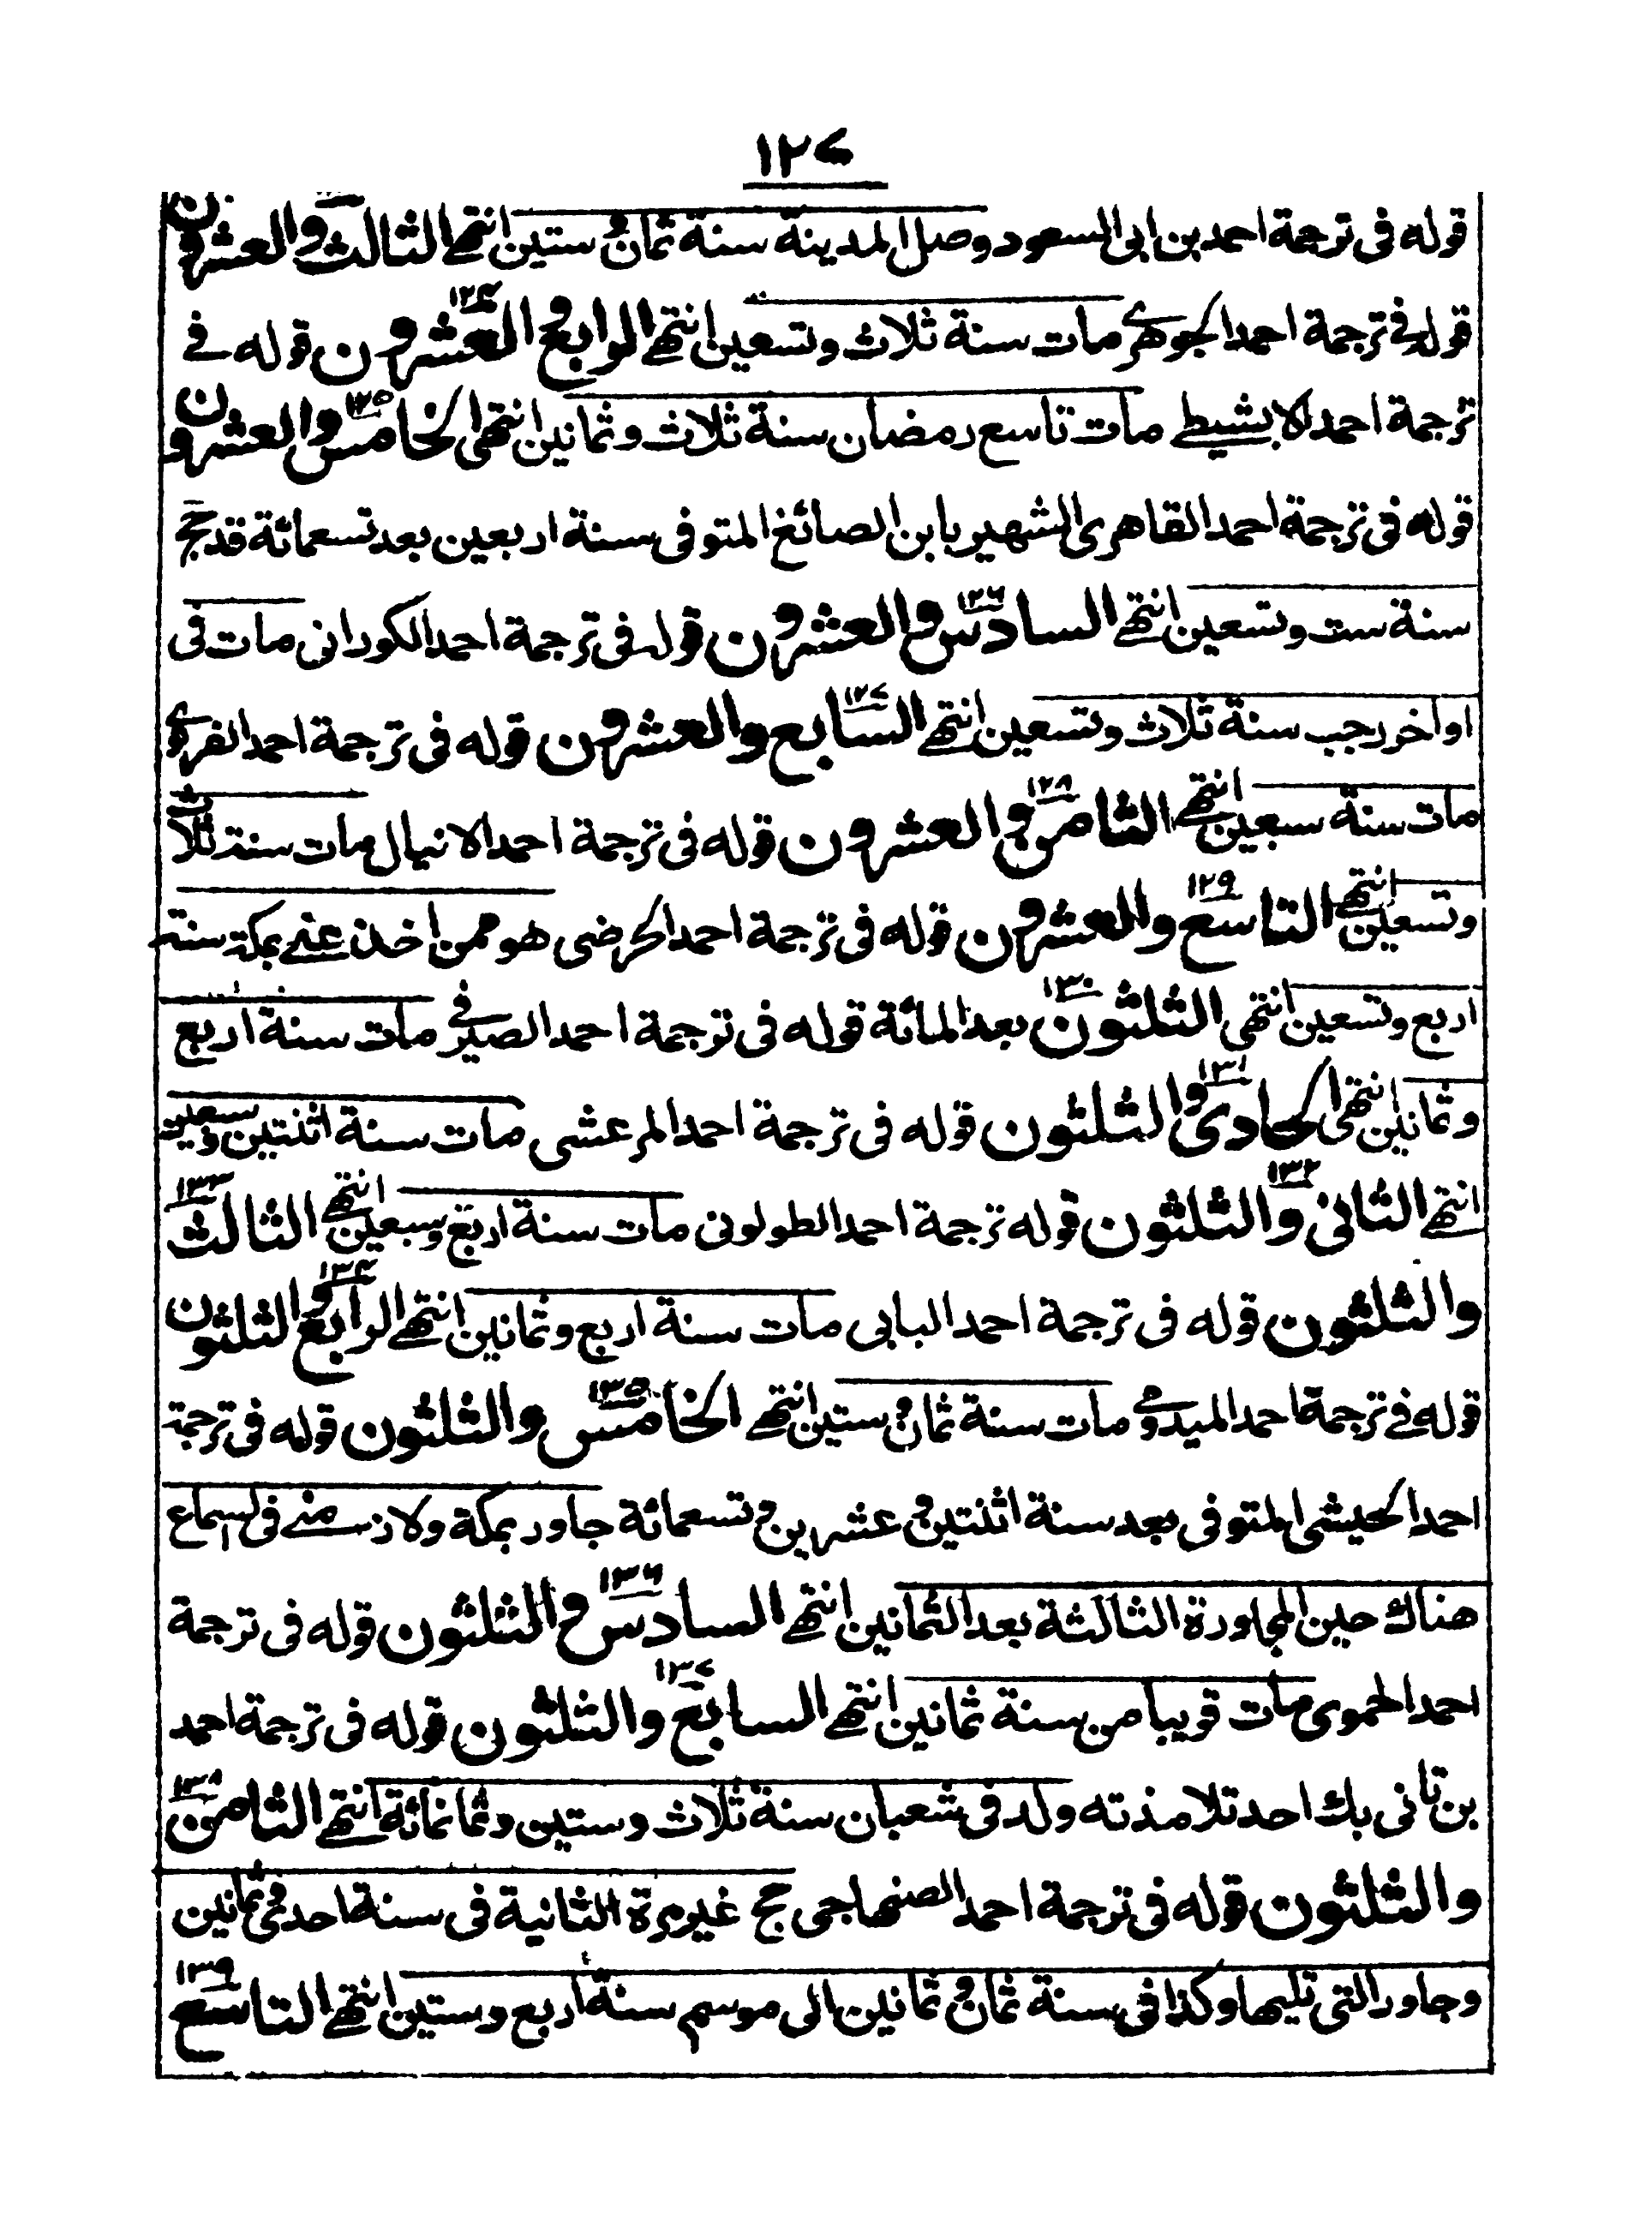 ١٢٧
قوله فى ترجمة احمد بن ابى السعود وصل المدينة سنة ثمان و ستين انتهى الثالث والعشرون
قوله فى ترجمة احمد الجوهرى مات سنة ثلاث وتسعين انتهى الرابع والعشرون ١٢٤ قوله فى
ترجمة احمد الابشيطى مات تاسع رمضان سنة ثلاث وثمانين انتهى الخامس والعشرون ١٢٥
قوله فى ترجمة احمد القاهرى الشهير بابن الصائغ المتوفى سنة اربعين بعد تسعمائة قد حج
سنة ست وتسعين انتهى السادس والعشرون ١٢٦ قوله فى ترجمة احمد الكورانى مات فى
اواخر رجب سنة ثلاث وتسعين انتهى السابع والعشرون ١٢٧ قوله فى ترجمة احمد
مات سنة سبعين انتهى الثامن والعشرون ١٢٨ قوله فى ترجمة احمد مات سنة ثلاث
وتسعين انتهى التاسع والعشرون ١٢٩ قوله فى ترجمة احمد الحرضى هو ممن اخذ عنى بمكة سنة
اربع وتسعين انتهى الثلثون ١٣٠ بعد المائة قوله فى ترجمة احمد الصيرفى مات سنة اربع
وثمانين انتهى الحادى والثلثون ١٣١ قوله فى ترجمة احمد المرعشى مات سنة اثنتين وسبعين
انتهى الثانى والثلثون ١٣٢ قوله ترجمة احمد الطولونى مات سنة اربع وسبعين انتهى الثالث ١٣٣
والثلثون قوله فى ترجمة احمد البابى مات سنة اربع وثمانين انتهى الرابع والثلثون ١٣٤
قوله فى ترجمة احمد الميدومى مات سنة ثمان و ستين انتهى الخامس والثلثون ١٣٥ قوله فى ترجمة
احمد الحيشى المتوفى بعد سنة اثنتين و عشرين و تسعمائة جاور بمكة ولازمنى فى السماع
هناك حين المجاورة الثالثة بعد الثمانين انتهى السادس والثلثون ١٣٦ قوله فى ترجمة
احمد الحموى مات قريبا من سنة ثمانين انتهى السابع والثلثون ١٣٧ قوله فى ترجمة احمد
بن تانى بك احد تلامذته ولد فى شعبان سنة ثلاث وستين وثمانمائة انتهى الثامن ١٣٨
والثلثون قوله فى ترجمة احمد الصنهاجى حج غير مرة الثانية فى سنة احدى و ثمانين
وجاور التى تليها وكذا فى سنة ثمان و ثمانين الى موسم سنة اربع وستين انتهى التاسع ١٣٩